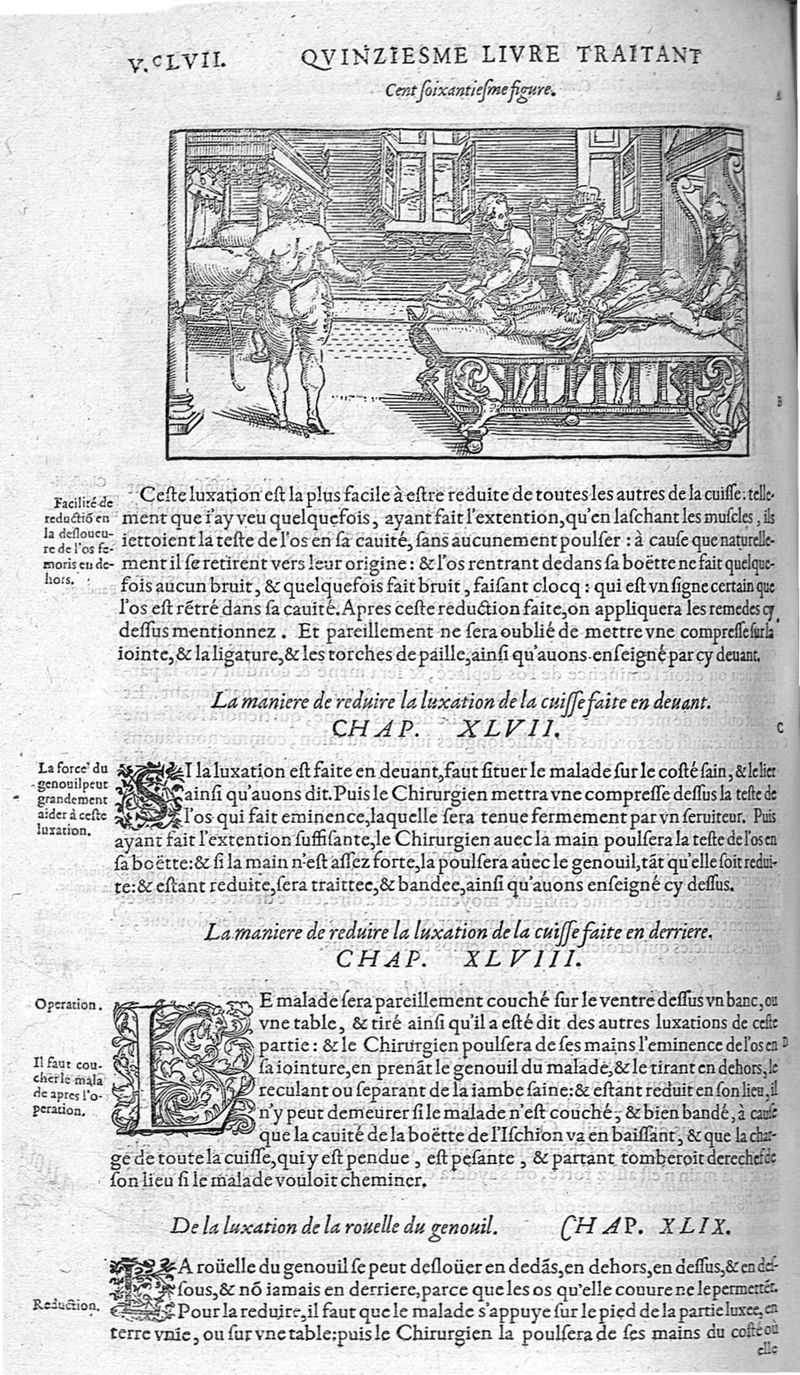 V.ᶜLVII.
QVINZIESME LIVRE TRAITANT
Cent ſoixantieſme figure.
A
B
Faciliré de
reductiõ en
la deſloueu-
re de l'os fe-
moris en de-
hors.
Ceſte luxation eſt la plus facile à eſtre reduite de toutes les autres de la cuiſſe: telle-
ment que i'ay veu quelquefois, ayant fait l'extention, qu'en laſchant les muſcles, ils
iettoient la teſte de l'os en ſa cauité, ſans aucunement poulſer : à cauſe que naturelle-
ment il ſe retirent vers leur origine: & l'os rentrant dedans ſa boëtte ne fait quelque-
fois aucun bruit, & quelquefois fait bruit, faiſant clocq : qui eſt vn ſigne certain que
l'os eſt rẽtré dans ſa cauité. Apres ceſte reduction faite, on appliquera les remedes cy
deſſus mentionnez. Et pareillement ne ſera oublié de mettre vne compreſſe ſur la
iointe, & la ligature, & les torches de paille, ainſi qu'auons enſeigné par cy deuant.
La maniere de reduire la luxation de la cuiſſe faite en deuant.
CHAP. XLVII.
C
La force du
genouil peut
grandement
aider à ceſte
luxation.
SI la luxation eſt faite en deuant, faut ſituer le malade ſur le coſté ſain, & le lier
ainſi qu'auons dit. Puis le Chirurgien mettra vne compreſſe deſſus la teſte de
l'os qui fait eminence, laquelle ſera tenue fermement par vn ſeruiteur. Puis
ayant fait l'extention ſuffiſante, le Chirurgien auec la main poulſera la teſte de l'os en
ſa boëtte: & ſi la main n'eſt aſſez forte, la poulſera auec le genouil, tãt qu'elle ſoit redui-
te: & eſtant reduite, ſera traittee, & bandee, ainſi qu'auons enſeigné cy deſſus.
La maniere de reduire la luxation de la cuiſſe faite en derriere.
CHAP. XLVIII.
Operation.
Il faut cou-
cher le mala
de apres l'o-
peration.
LE malade ſera pareillement couché ſur le ventre deſſus vn banc, ou
vne table, & tiré ainſi qu'il a eſté dit des autres luxations de ceſte
partie: & le Chirurgien poulſera de ſes mains l'eminence de l'os en
D
ſa iointure, en prenãt le genouil du malade, & le tirant en dehors, le
reculant ou ſeparant de la iambe ſaine: & eſtant reduit en ſon lieu, il
n'y peut demeurer ſi le malade n'eſt couché, & bien bandé, à cauſe
que la cauité de la boëtte de l'Iſchion va en baiſſant, & que la char-
ge de toute la cuiſſe, qui y eſt pendue, eſt peſante, & partant tomberoit derechef de
ſon lieu ſi le malade vouloit cheminer.
De la luxation de la rouelle du genouil. CHAP. XLIX.
Reduction.
LA roüelle du genouil ſe peut deſloüer en dedãs, en dehors, en deſſus, & en deſ-
ſous, & nõ iamais en derriere, parce que les os qu'elle couure ne le permettẽt.
Pour la reduire, il faut que le malade s'appuye ſur le pied de la partie luxee, en
terre vnie, ou ſur vne table: puis le Chirurgien la poulſera de ſes mains du coſté où
elle